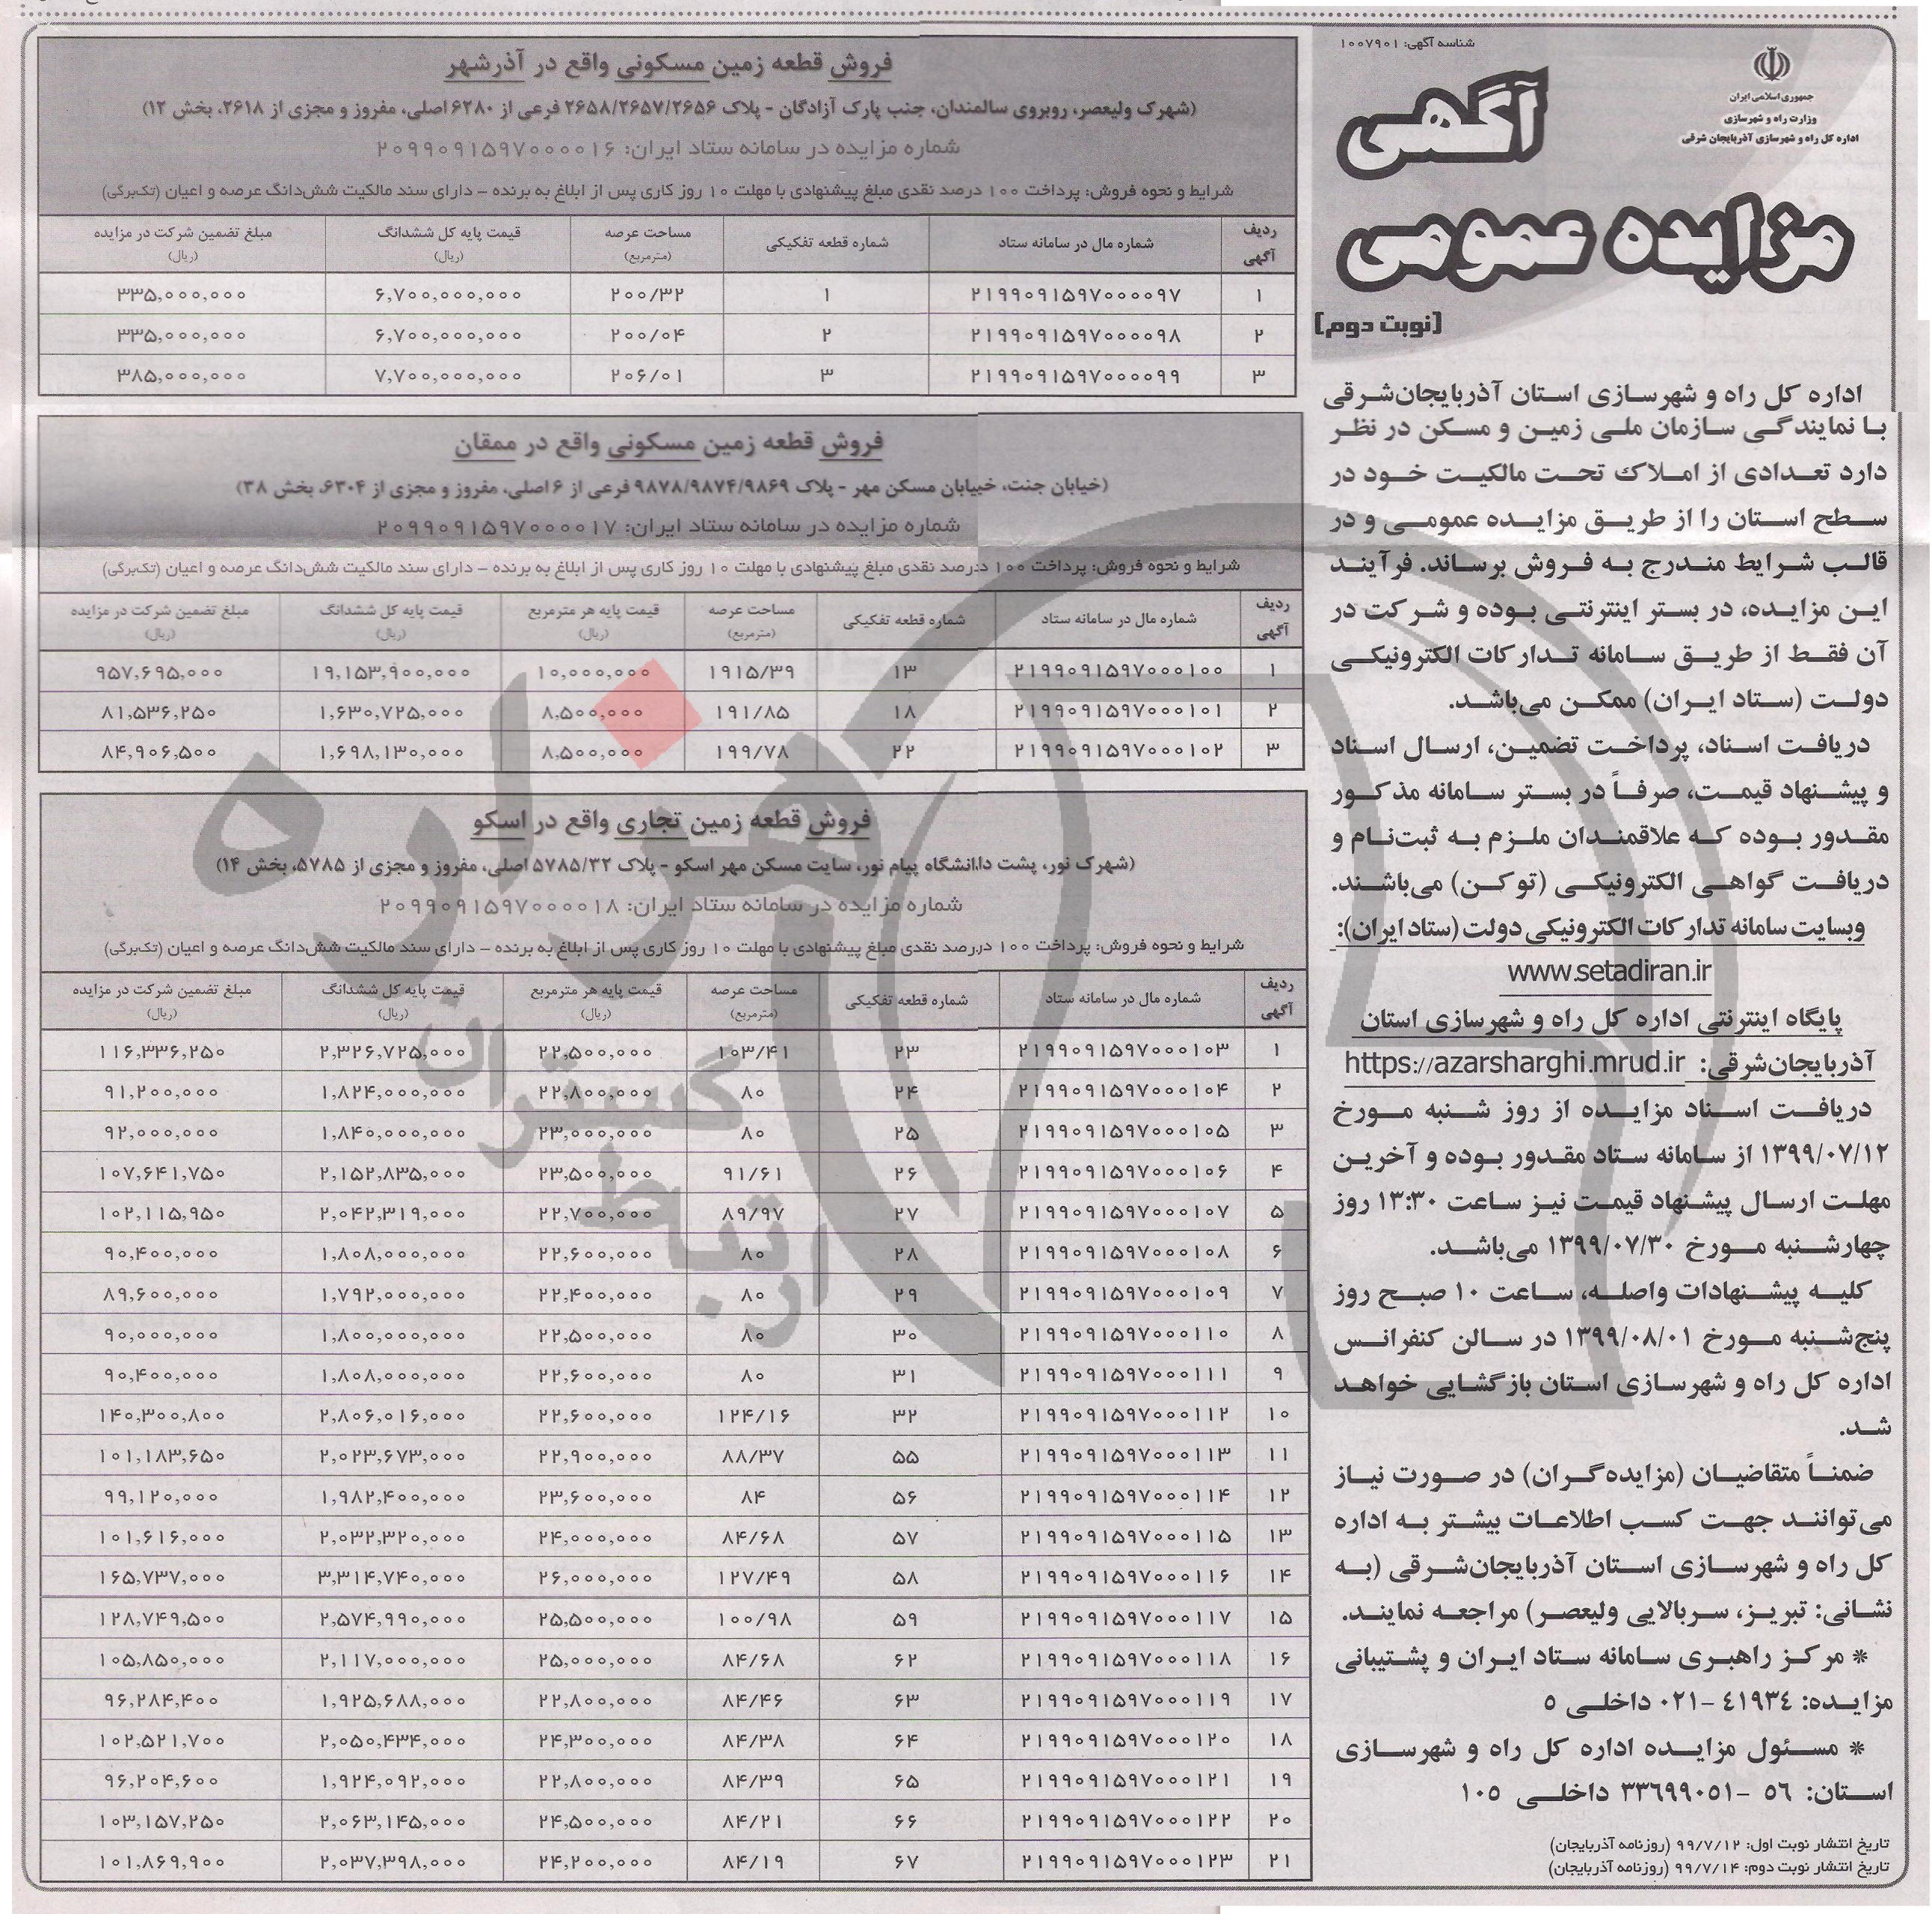 شناسه آگهی: ۱۰۰۷۹۰۱
جمهوری اسلامی ایران
وزارت راه و شهرسازی
اداره کل راه و شهرسازی آذربایجان شرقی
آگهی
مزایده عمومی
(نوبت دوم)
اداره کل راه و شهرسازی استان آذربایجان‌شرقی
با نمایندگی سازمان ملی زمین و مسکن در نظر
دارد تعدادی از املاک تحت مالکیت خود در
سطح استان را از طریق مزایده عمومی و در
قالب شرایط مندرج به فروش برساند. فرآیند
این مزایده، در بستر اینترنتی بوده و شرکت در
آن فقط از طریق سامانه تدارکات الکترونیکی
دولت (ستاد ایران) ممکن می‌باشد.
دریافت اسناد، پرداخت تضمین، ارسال اسناد
و پیشنهاد قیمت، صرفاً در بستر سامانه مذکور
مقدور بوده که علاقمندان ملزم به ثبت‌نام و
دریافت گواهی الکترونیکی (توکن) می‌باشند.
وبسایت سامانه تدارکات الکترونیکی دولت (ستاد ایران):
www.setadiran.ir
پایگاه اینترنتی اداره کل راه و شهرسازی استان
آذربایجان‌شرقی: https://azarsharghi.mrud.ir
دریافت اسناد مزایده از روز شنبه مورخ
۱۳۹۹/۰۷/۱۲ از سامانه ستاد مقدور بوده و آخرین
مهلت ارسال پیشنهاد قیمت نیز ساعت ۱۳:۳۰ روز
چهارشنبه مورخ ۱۳۹۹/۰۷/۳۰ می‌باشد.
کلیه پیشنهادات واصله، ساعت ۱۰ صبح روز
پنج‌شنبه مورخ ۱۳۹۹/۰۸/۰۱ در سالن کنفرانس
اداره کل راه و شهرسازی استان بازگشایی خواهد
شد.
ضمناً متقاضیان (مزایده‌گران) در صورت نیاز
می‌توانند جهت کسب اطلاعات بیشتر به اداره
کل راه و شهرسازی استان آذربایجان‌شرقی (به
نشانی: تبریز، سربالایی ولیعصر) مراجعه نمایند.
* مرکز راهبری سامانه ستاد ایران و پشتیبانی
مزایده: ۴۱۹۳۴ -۰۲۱ داخلی ۵
* مسئول مزایده اداره کل راه و شهرسازی
استان: ۵۶ -۳۳۶۹۹۰۵۱ داخلی ۱۰۵
تاریخ انتشار نوبت اول: ۹۹/۷/۱۲ (روزنامه آذربایجان)
تاریخ انتشار نوبت دوم: ۹۹/۷/۱۴ (روزنامه آذربایجان)
فروش قطعه زمین مسکونی واقع در آذرشهر
(شهرک ولیعصر، روبروی سالمندان، جنب پارک آزادگان - پلاک ۲۶۵۸/۲۶۵۷/۲۶۵۶ فرعی از ۶۲۸۰ اصلی، مفروز و مجزی از ۲۶۱۸، بخش ۱۲)
شماره مزایده در سامانه ستاد ایران: ۲۰۹۹۰۹۱۵۹۷۰۰۰۰۱۶
شرایط و نحوه فروش: پرداخت ۱۰۰ درصد نقدی مبلغ پیشنهادی با مهلت ۱۰ روز کاری پس از ابلاغ به برنده - دارای سند مالکیت شش‌دانگ عرصه و اعیان (تک‌برگی)
ردیف آگهی شماره مال در سامانه ستاد شماره قطعه تفکیکی مساحت عرصه (مترمربع) قیمت پایه کل ششدانگ (ریال) مبلغ تضمین شرکت در مزایده (ریال)
۱ ۲۱۹۹۰۹۱۵۹۷۰۰۰۰۹۷ ۱ ۲۰۰/۳۲ ۶,۷۰۰,۰۰۰,۰۰۰ ۳۳۵,۰۰۰,۰۰۰
۲ ۲۱۹۹۰۹۱۵۹۷۰۰۰۰۹۸ ۲ ۲۰۰/۰۴ ۶,۷۰۰,۰۰۰,۰۰۰ ۳۳۵,۰۰۰,۰۰۰
۳ ۲۱۹۹۰۹۱۵۹۷۰۰۰۰۹۹ ۳ ۲۰۶/۰۱ ۷,۷۰۰,۰۰۰,۰۰۰ ۳۸۵,۰۰۰,۰۰۰
فروش قطعه زمین مسکونی واقع در ممقان
(خیابان جنت، خیابان مسکن مهر - پلاک ۹۸۷۸/۹۸۷۴/۹۸۶۹ فرعی از ۶ اصلی، مفروز و مجزی از ۶۳۰۴، بخش ۳۸)
شماره مزایده در سامانه ستاد ایران: ۲۰۹۹۰۹۱۵۹۷۰۰۰۰۱۷
شرایط و نحوه فروش: پرداخت ۱۰۰ درصد نقدی مبلغ پیشنهادی با مهلت ۱۰ روز کاری پس از ابلاغ به برنده - دارای سند مالکیت شش‌دانگ عرصه و اعیان (تک‌برگی)
ردیف آگهی شماره مال در سامانه ستاد شماره قطعه تفکیکی مساحت عرصه (مترمربع) قیمت پایه هر مترمربع (ریال) قیمت پایه کل ششدانگ (ریال) مبلغ تضمین شرکت در مزایده (ریال)
۱ ۲۱۹۹۰۹۱۵۹۷۰۰۰۱۰۰ ۱۳ ۱۹۱۵/۳۹ ۱۰,۰۰۰,۰۰۰ ۱۹,۱۵۳,۹۰۰,۰۰۰ ۹۵۷,۶۹۵,۰۰۰
۲ ۲۱۹۹۰۹۱۵۹۷۰۰۰۱۰۱ ۱۸ ۱۹۱/۸۵ ۸,۵۰۰,۰۰۰ ۱,۶۳۰,۷۲۵,۰۰۰ ۸۱,۵۳۶,۲۵۰
۳ ۲۱۹۹۰۹۱۵۹۷۰۰۰۱۰۲ ۲۲ ۱۹۹/۷۸ ۸,۵۰۰,۰۰۰ ۱,۶۹۸,۱۳۰,۰۰۰ ۸۴,۹۰۶,۵۰۰
فروش قطعه زمین تجاری واقع در اسکو
(شهرک نور، پشت دانشگاه پیام نور، سایت مسکن مهر اسکو - پلاک ۵۷۸۵/۳۲ اصلی، مفروز و مجزی از ۵۷۸۵، بخش ۱۴)
شماره مزایده در سامانه ستاد ایران: ۲۰۹۹۰۹۱۵۹۷۰۰۰۰۱۸
شرایط و نحوه فروش: پرداخت ۱۰۰ درصد نقدی مبلغ پیشنهادی با مهلت ۱۰ روز کاری پس از ابلاغ به برنده - دارای سند مالکیت شش‌دانگ عرصه و اعیان (تک‌برگی)
ردیف آگهی شماره مال در سامانه ستاد شماره قطعه تفکیکی مساحت عرصه (مترمربع) قیمت پایه هر مترمربع (ریال) قیمت پایه کل ششدانگ (ریال) مبلغ تضمین شرکت در مزایده (ریال)
۱ ۲۱۹۹۰۹۱۵۹۷۰۰۰۱۰۳ ۲۳ ۱۰۳/۴۱ ۲۲,۵۰۰,۰۰۰ ۲,۳۲۶,۷۲۵,۰۰۰ ۱۱۶,۳۳۶,۲۵۰
۲ ۲۱۹۹۰۹۱۵۹۷۰۰۰۱۰۴ ۲۴ ۸۰ ۲۲,۸۰۰,۰۰۰ ۱,۸۲۴,۰۰۰,۰۰۰ ۹۱,۲۰۰,۰۰۰
۳ ۲۱۹۹۰۹۱۵۹۷۰۰۰۱۰۵ ۲۵ ۸۰ ۲۳,۰۰۰,۰۰۰ ۱,۸۴۰,۰۰۰,۰۰۰ ۹۲,۰۰۰,۰۰۰
۴ ۲۱۹۹۰۹۱۵۹۷۰۰۰۱۰۶ ۲۶ ۹۱/۶۱ ۲۳,۵۰۰,۰۰۰ ۲,۱۵۲,۸۳۵,۰۰۰ ۱۰۷,۶۴۱,۷۵۰
۵ ۲۱۹۹۰۹۱۵۹۷۰۰۰۱۰۷ ۲۷ ۸۹/۹۷ ۲۲,۷۰۰,۰۰۰ ۲,۰۴۲,۳۱۹,۰۰۰ ۱۰۲,۱۱۵,۹۵۰
۶ ۲۱۹۹۰۹۱۵۹۷۰۰۰۱۰۸ ۲۸ ۸۰ ۲۲,۶۰۰,۰۰۰ ۱,۸۰۸,۰۰۰,۰۰۰ ۹۰,۴۰۰,۰۰۰
۷ ۲۱۹۹۰۹۱۵۹۷۰۰۰۱۰۹ ۲۹ ۸۰ ۲۲,۴۰۰,۰۰۰ ۱,۷۹۲,۰۰۰,۰۰۰ ۸۹,۶۰۰,۰۰۰
۸ ۲۱۹۹۰۹۱۵۹۷۰۰۰۱۱۰ ۳۰ ۸۰ ۲۲,۵۰۰,۰۰۰ ۱,۸۰۰,۰۰۰,۰۰۰ ۹۰,۰۰۰,۰۰۰
۹ ۲۱۹۹۰۹۱۵۹۷۰۰۰۱۱۱ ۳۱ ۸۰ ۲۲,۶۰۰,۰۰۰ ۱,۸۰۸,۰۰۰,۰۰۰ ۹۰,۴۰۰,۰۰۰
۱۰ ۲۱۹۹۰۹۱۵۹۷۰۰۰۱۱۲ ۳۲ ۱۲۴/۱۶ ۲۲,۶۰۰,۰۰۰ ۲,۸۰۶,۰۱۶,۰۰۰ ۱۴۰,۳۰۰,۸۰۰
۱۱ ۲۱۹۹۰۹۱۵۹۷۰۰۰۱۱۳ ۵۵ ۸۸/۳۷ ۲۲,۹۰۰,۰۰۰ ۲,۰۲۳,۶۷۳,۰۰۰ ۱۰۱,۱۸۳,۶۵۰
۱۲ ۲۱۹۹۰۹۱۵۹۷۰۰۰۱۱۴ ۵۶ ۸۴ ۲۳,۶۰۰,۰۰۰ ۱,۹۸۲,۴۰۰,۰۰۰ ۹۹,۱۲۰,۰۰۰
۱۳ ۲۱۹۹۰۹۱۵۹۷۰۰۰۱۱۵ ۵۷ ۸۴/۶۸ ۲۴,۰۰۰,۰۰۰ ۲,۰۳۲,۳۲۰,۰۰۰ ۱۰۱,۶۱۶,۰۰۰
۱۴ ۲۱۹۹۰۹۱۵۹۷۰۰۰۱۱۶ ۵۸ ۱۲۷/۴۹ ۲۶,۰۰۰,۰۰۰ ۳,۳۱۴,۷۴۰,۰۰۰ ۱۶۵,۷۳۷,۰۰۰
۱۵ ۲۱۹۹۰۹۱۵۹۷۰۰۰۱۱۷ ۵۹ ۱۰۰/۹۸ ۲۵,۵۰۰,۰۰۰ ۲,۵۷۴,۹۹۰,۰۰۰ ۱۲۸,۷۴۹,۵۰۰
۱۶ ۲۱۹۹۰۹۱۵۹۷۰۰۰۱۱۸ ۶۲ ۸۴/۶۸ ۲۵,۰۰۰,۰۰۰ ۲,۱۱۷,۰۰۰,۰۰۰ ۱۰۵,۸۵۰,۰۰۰
۱۷ ۲۱۹۹۰۹۱۵۹۷۰۰۰۱۱۹ ۶۳ ۸۴/۴۶ ۲۲,۸۰۰,۰۰۰ ۱,۹۲۵,۶۸۸,۰۰۰ ۹۶,۲۸۴,۴۰۰
۱۸ ۲۱۹۹۰۹۱۵۹۷۰۰۰۱۲۰ ۶۴ ۸۴/۳۸ ۲۴,۳۰۰,۰۰۰ ۲,۰۵۰,۴۳۴,۰۰۰ ۱۰۲,۵۲۱,۷۰۰
۱۹ ۲۱۹۹۰۹۱۵۹۷۰۰۰۱۲۱ ۶۵ ۸۴/۳۹ ۲۲,۸۰۰,۰۰۰ ۱,۹۲۴,۰۹۲,۰۰۰ ۹۶,۲۰۴,۶۰۰
۲۰ ۲۱۹۹۰۹۱۵۹۷۰۰۰۱۲۲ ۶۶ ۸۴/۲۱ ۲۴,۵۰۰,۰۰۰ ۲,۰۶۳,۱۴۵,۰۰۰ ۱۰۳,۱۵۷,۲۵۰
۲۱ ۲۱۹۹۰۹۱۵۹۷۰۰۰۱۲۳ ۶۷ ۸۴/۱۹ ۲۴,۲۰۰,۰۰۰ ۲,۰۳۷,۳۹۸,۰۰۰ ۱۰۱,۸۶۹,۹۰۰
هزاره
گستران
ارتباط